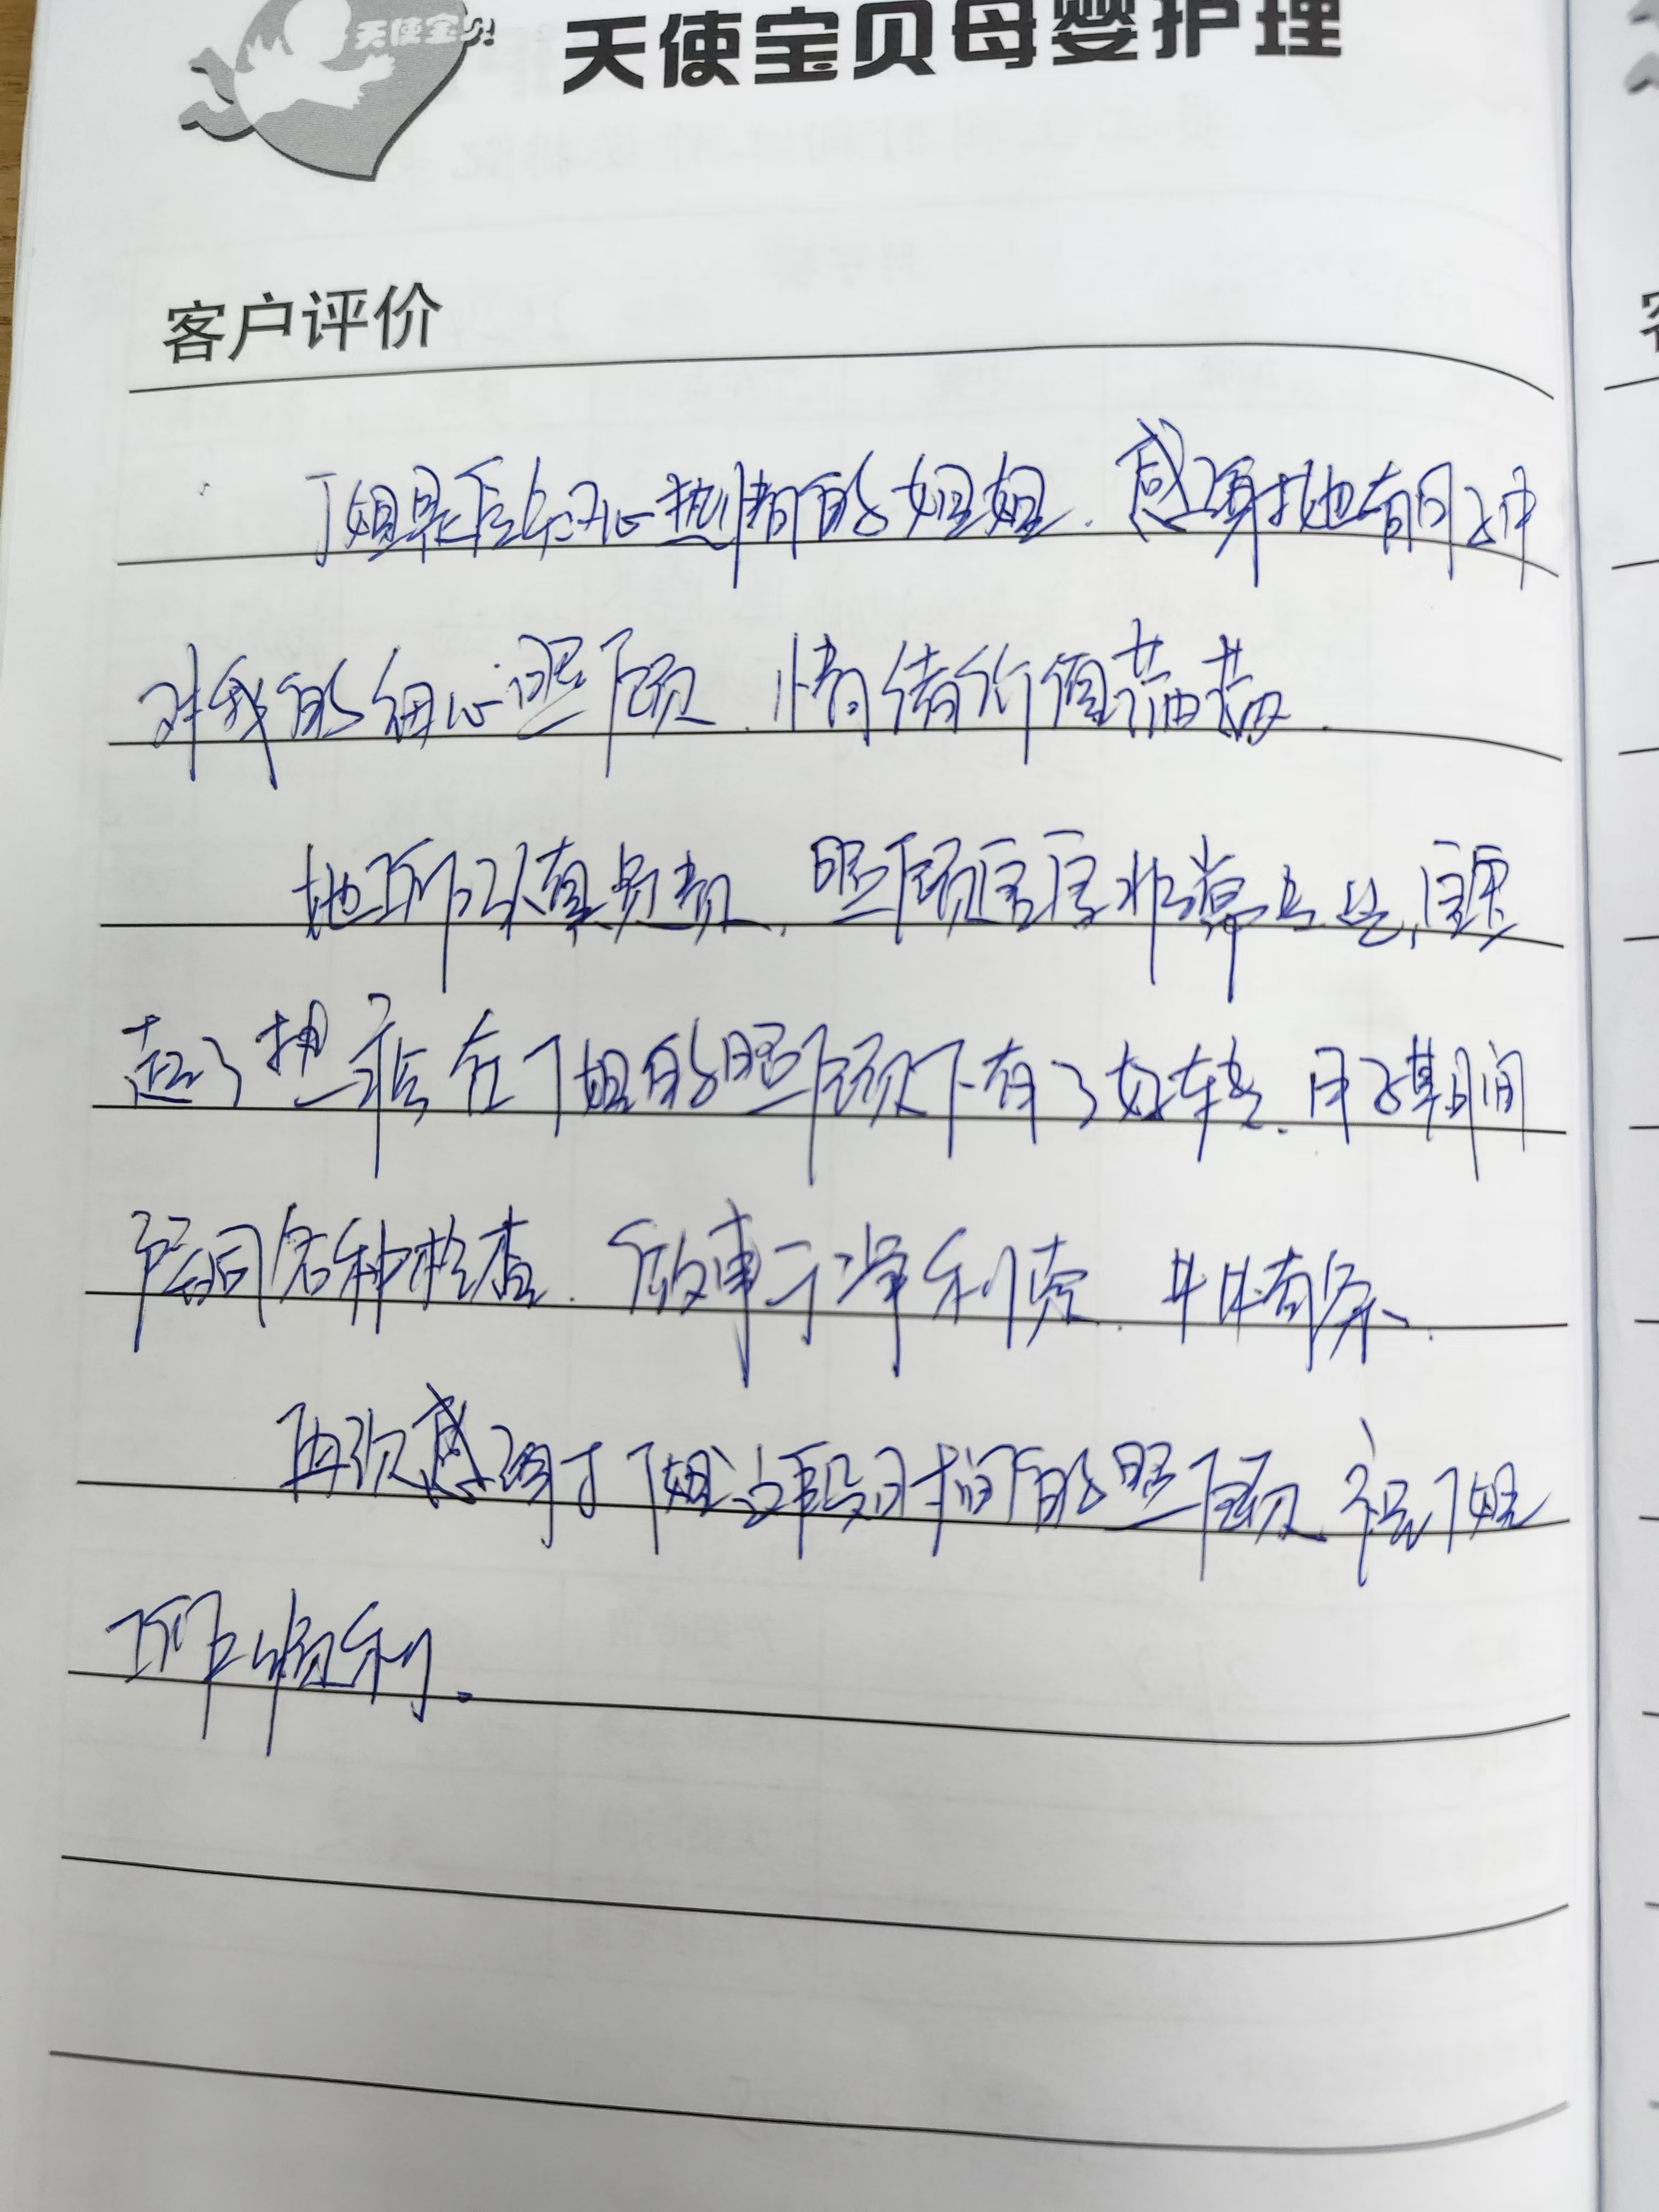 天使宝贝
天使宝贝母婴护理
客户评价
丁姐是位知心热情的姐姐、感谢她在月子中
对我的细心照顾、情绪价值满满、
她工作认真负责、照顾宝宝非常专业,宝宝
起了热痱在丁姐的照顾下有了好转、月子期间
陪同各种检查、做事干净利索、井井有条、
再次感谢丁姐这段时间的照顾、祝丁姐
工作顺利。